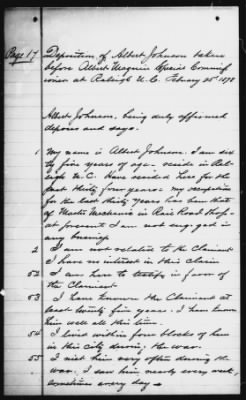 Page 17
Deposition of Albert Johnson taken
before Albert Magnin Special Commiss
ioner at Raleigh N.C. Febuary 25th 1878
Albert Johnson, being duly affirmed
deposes and says.
1 My name is Albert Johnson. I am six
ty five years of age - reside in Ral-
eigh N.C. Have resided here for the
past thirty four years - my occupation
for the last thirty years has been that
of Master Mechanic in Rail Road Shop -
at present I am not engaged in
any business
2 I am not related to the Claimant
I have no interest in this claim
52 I am here to testify in favor of
the Claimant
53 I have known the Claimant at
least twenty five years. I have known
him well all this time.
54 I lived within four blocks of him
in this city during the war.
55 I visit him very often during the
war. I saw him nearly every week,
sometimes every day -